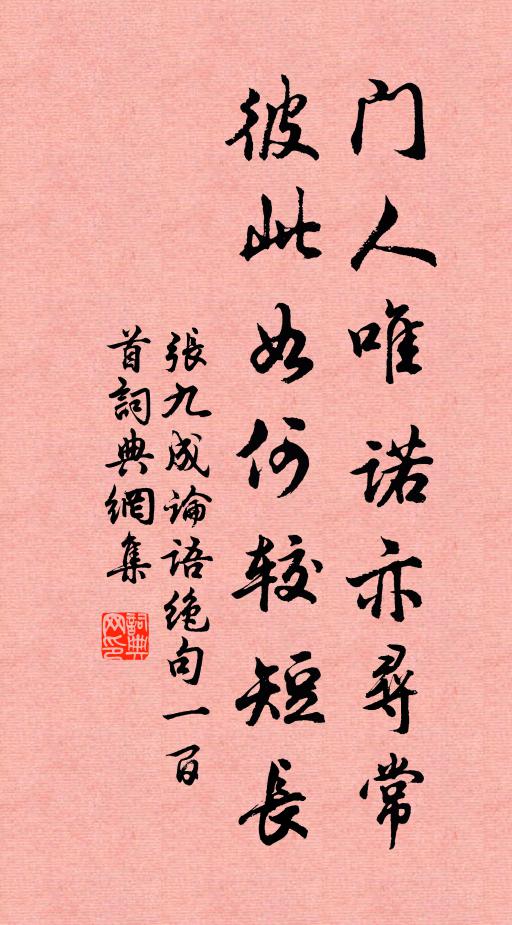 门人唯诺亦寻常
彼此如何较短长
張九成論語絕句一百
首詞典網集
詞典网印